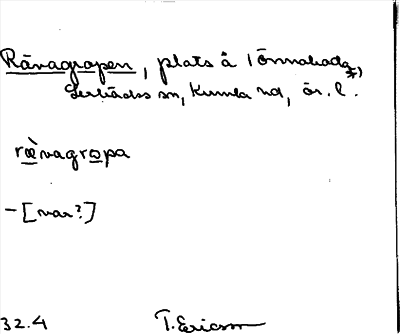 Rävagropen, plats å Tönnabada *)
Lerbäcks sn, Kumla hd, ör. l.
rævagropa
- [var?]
32.4 T. Ericsson